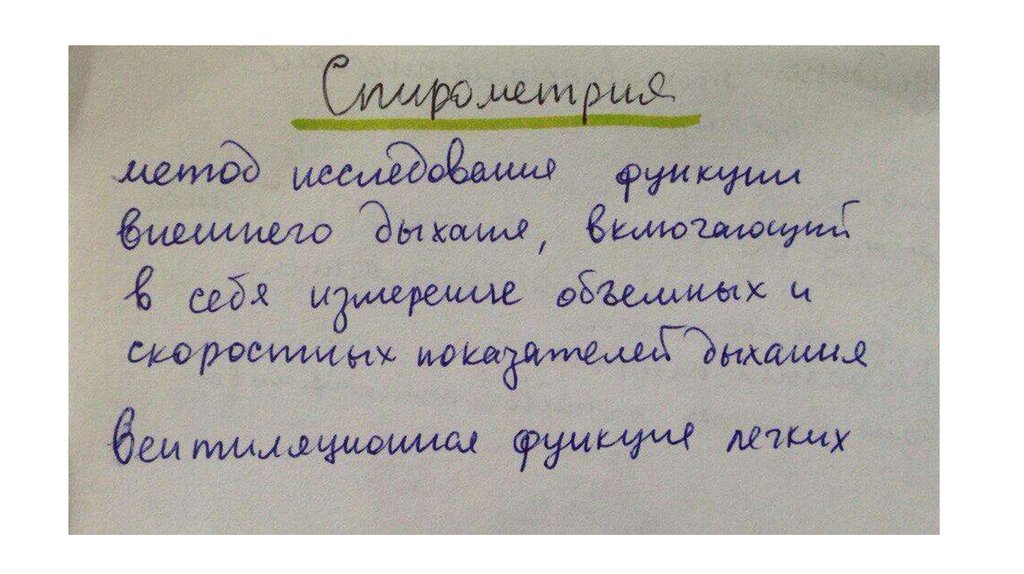 Спирометрия
метод исследования функции
внешнего дыхания, включающий
в себя измерение объемных и
скоростных показателей дыхания
Вентиляционная функция легких